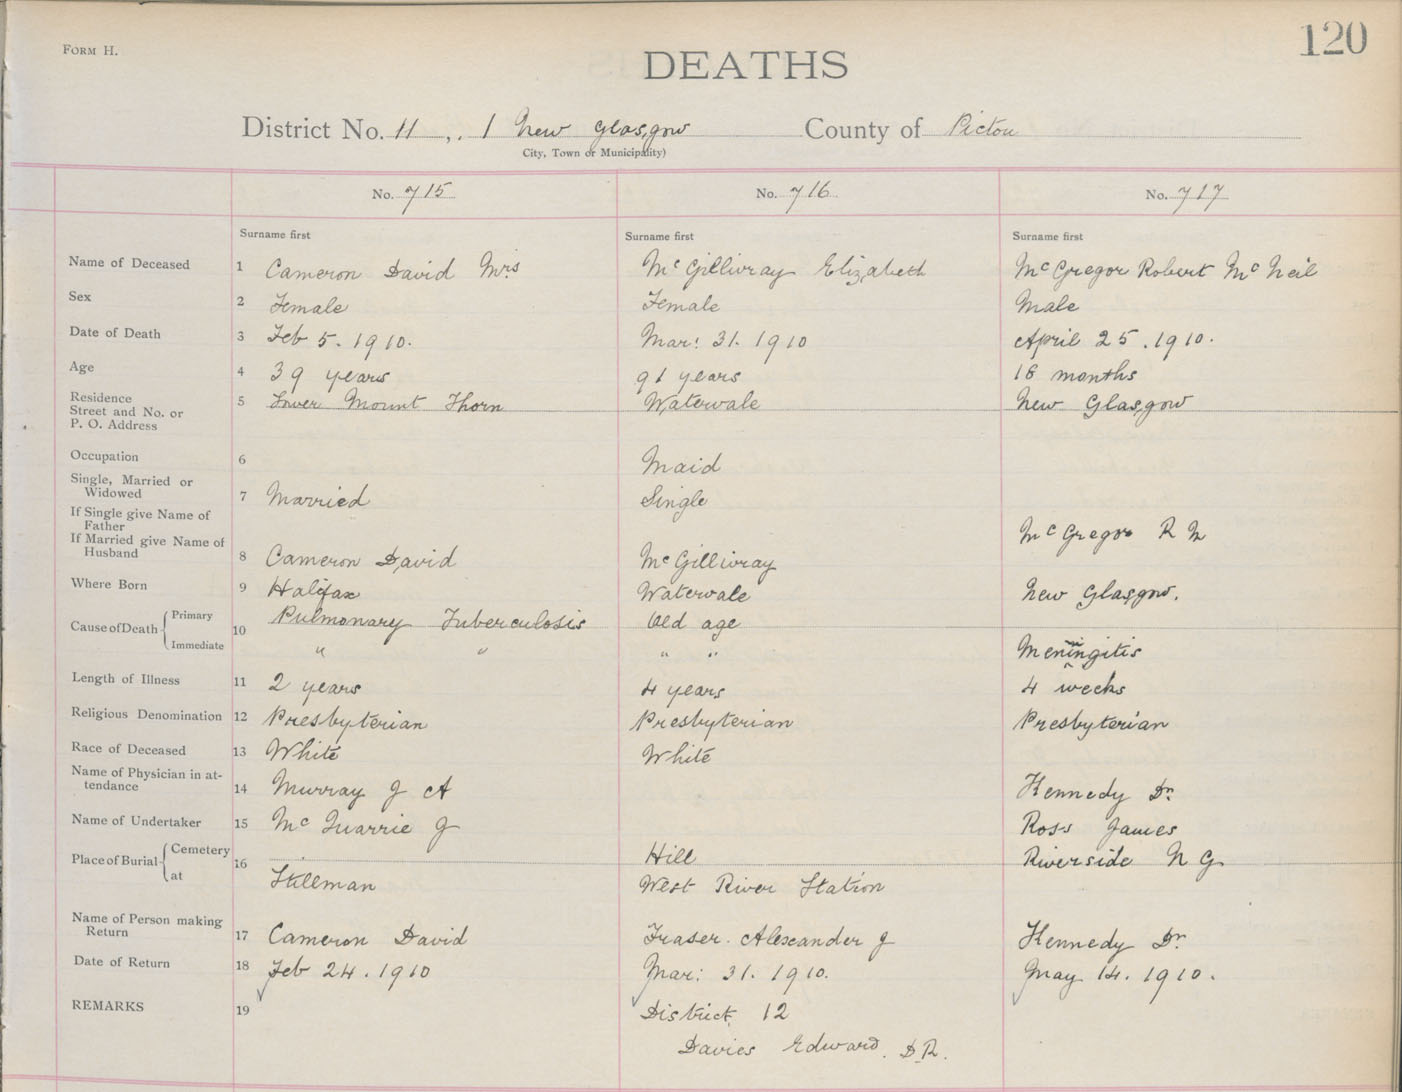 120
FORM H.
DEATHS
District No. 11 , . 1 New Glasgow County of Pictou
City, Town or Municipality)
No. 715 No. 716 No. 717
Surname first Surname first Surname first
Name of Deceased 1 Cameron David Mrs McGillivray Elizabeth McGregor Robert McNeil
Sex 2 Female Female Male
Date of Death 3 Feb 5. 1910. Mar: 31. 1910 April 25. 1910.
Age 4 39 years 91 years 16 months
Residence 5 Lower Mount Thorn Watervale New Glasgow
Street and No. or
P. O. Address
Occupation 6 Maid
Single, Married or
Widowed 7 Married Single
If Single give Name of
Father McGregor R M
If Married give Name of
Husband 8 Cameron David McGillivray
Where Born 9 Halifax Watervale New Glasgow.
Cause of Death Primary 10 Pulmonary Tuberculosis Old age
Immediate " " " " Meningitis
Length of Illness 11 2 years 4 years 4 weeks
Religious Denomination 12 Presbyterian Presbyterian Presbyterian
Race of Deceased 13 White White
Name of Physician in at-
tendance 14 Murray J A Kennedy Dr.
Name of Undertaker 15 McQuarrie J Ross James
Place of Burial Cemetery 16 Hill Riverside N G
at Stillman West River Station
Name of Person making
Return 17 Cameron David Fraser. Alexander J Kennedy Dr.
Date of Return 18 Feb 24. 1910 Mar: 31. 1910. May 14. 1910.
REMARKS 19 District 12
Davies Edward. D.R.